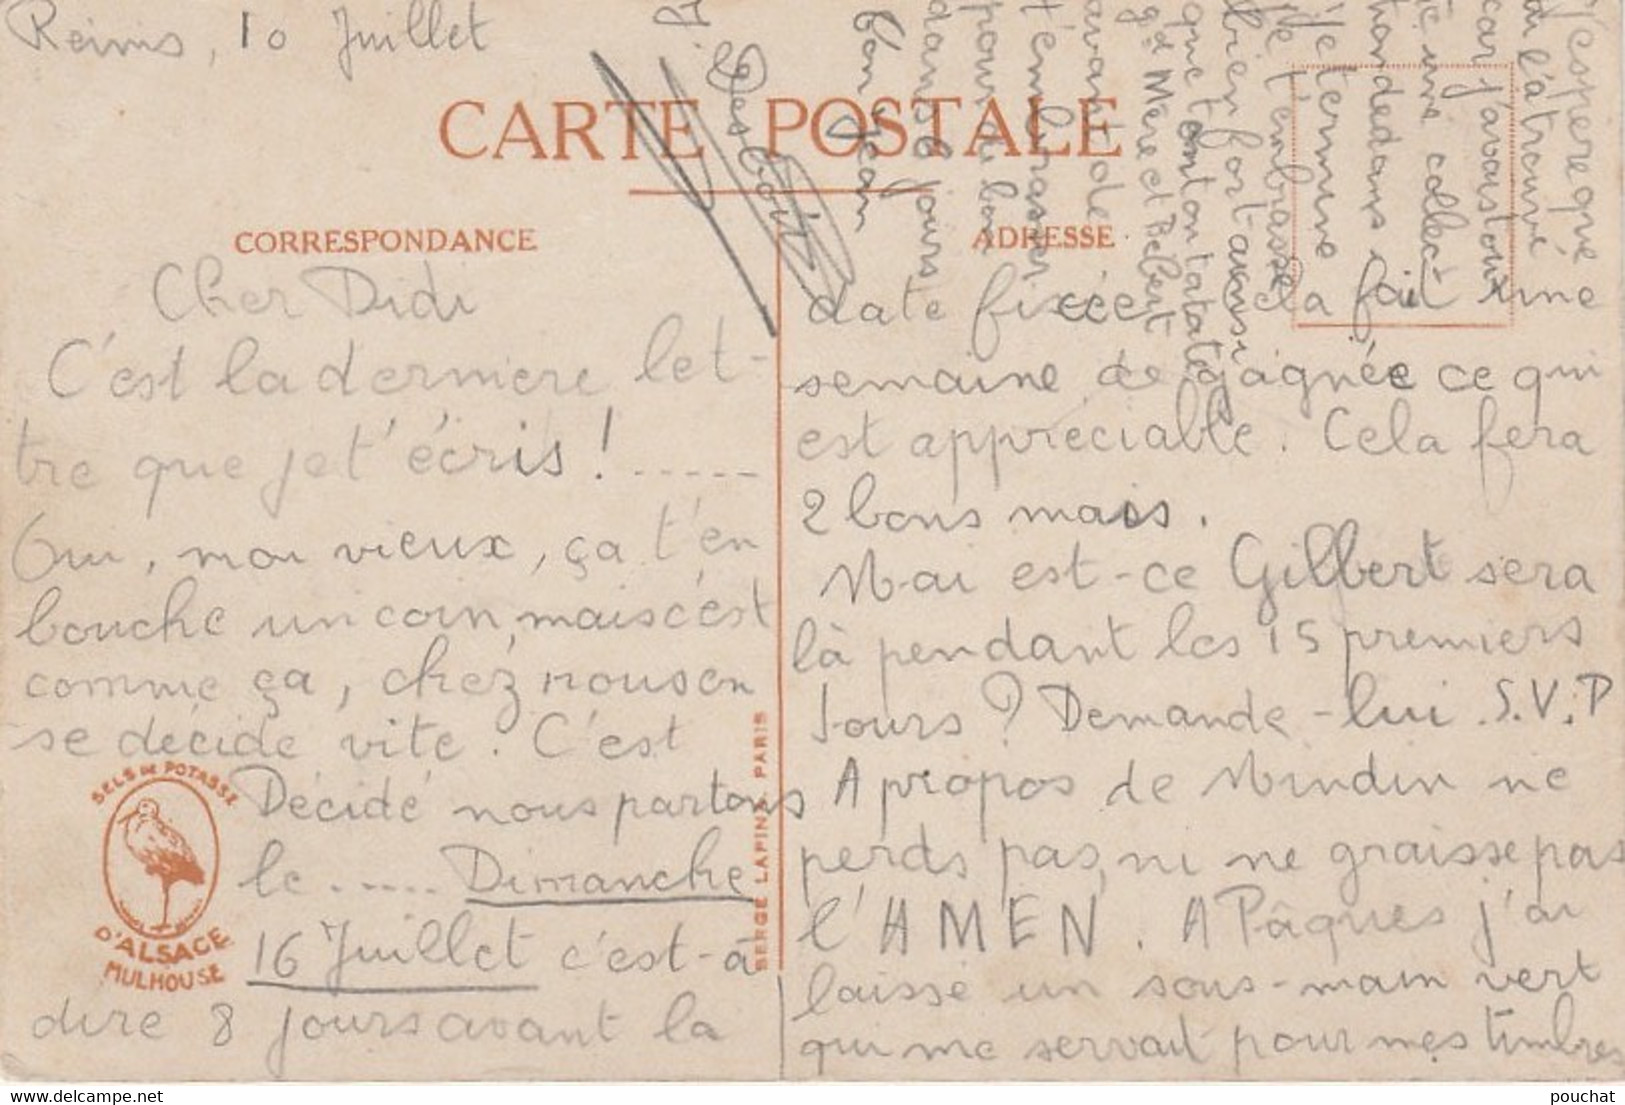 Reims, 10 Juillet
CARTE POSTALE
CORRESPONDANCE
ADRESSE
Cher Didi
C'est la dernière let-
tre que je t'écris ! .....
Oui, mon vieux, ça t'en
bouche un coin, mais c'est
comme ça, chez nous on
se décide vite. C'est
Décidé nous partons
le ..... Dimanche
16 Juillet c'est-à
dire 8 jours avant la
SELS DE POTASSE
D'ALSACE
MULHOUSE
SERGE LAPINA, PARIS
date fixée cela fait une
semaine de gagnée ce qui
est appréciable. Cela fera
2 bons mois.
Mai est-ce Gilbert sera
là pendant les 15 premiers
jours ? Demande-lui S.V.P
A propos de Mindin ne
perds pas, ni ne graisse pas
l'AMEN. A Pâques j'ai
laissé un sous-main vert
qui me servait pour mes timbres
J'espère que
tu l'a trouvé
car j'avais tout
une collect
dedans
Je termine
je t'embrasse
bien fort ainsi
que tonton tata
gd Mère et Bébert
avant de
t'embrasser
pour de bon
dans 6 jours
ton Jean
J. Desbout
Delcampe.net
pouchat